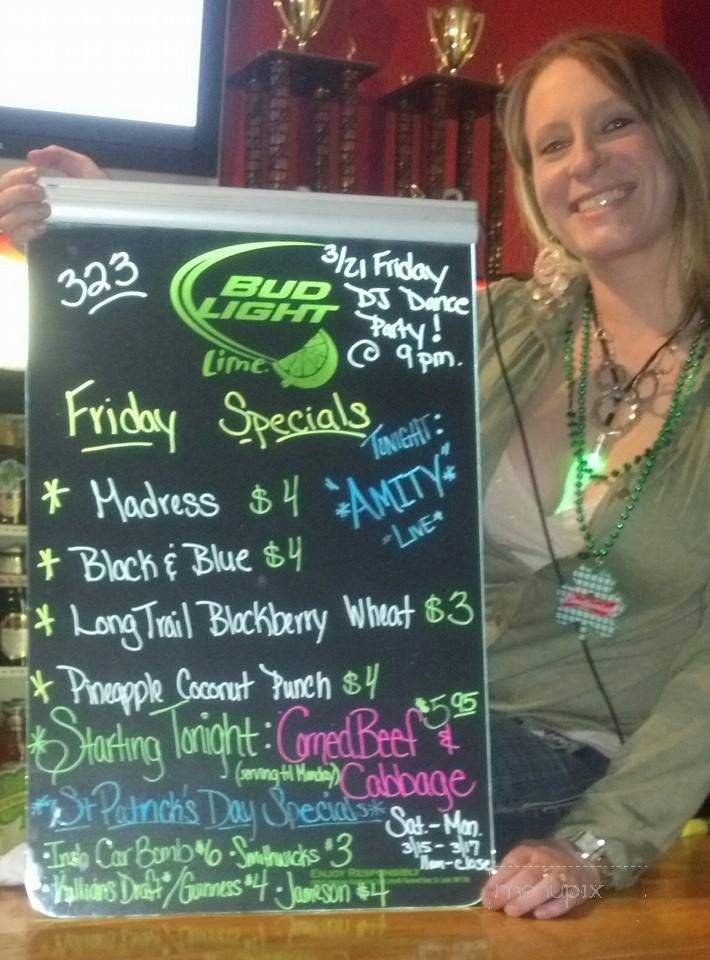 323
BUD LIGHT Lime
3/21 Friday
DJ Dance
Party!
@ 9pm.
Friday Specials
TONIGHT:
"AMITY"
*LIVE*
* Madress $4
* Black & Blue $4
* Long Trail Blackberry Wheat $3
* Pineapple Coconut Punch $4
* Starting Tonight: Corned Beef & Cabbage $5.95
(serving til Monday)
*St Patrick's Day Specials*
Sat. - Mon.
3/15 - 3/17
11am - close
· Irish Car Bomb $6 · Smithwicks $3
· Killians Draft*/Guinness $4 · Jameson $4
ENJOY RESPONSIBLY
menupix